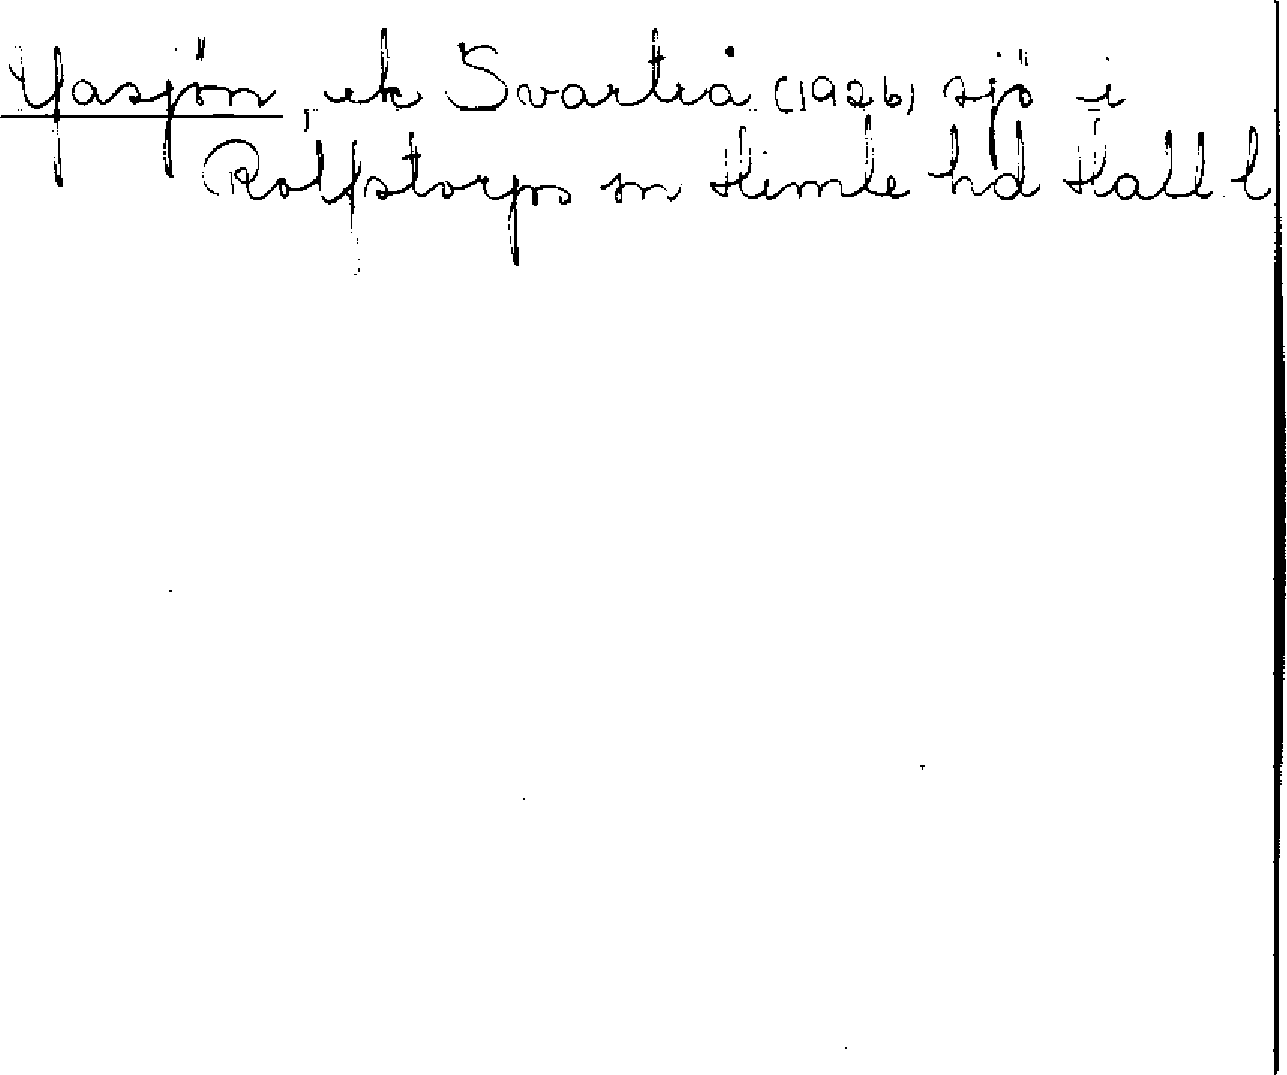 Yasjön, ek Svartrå (1926) sjö i
Rolfstorps sn Himle hd Hall l